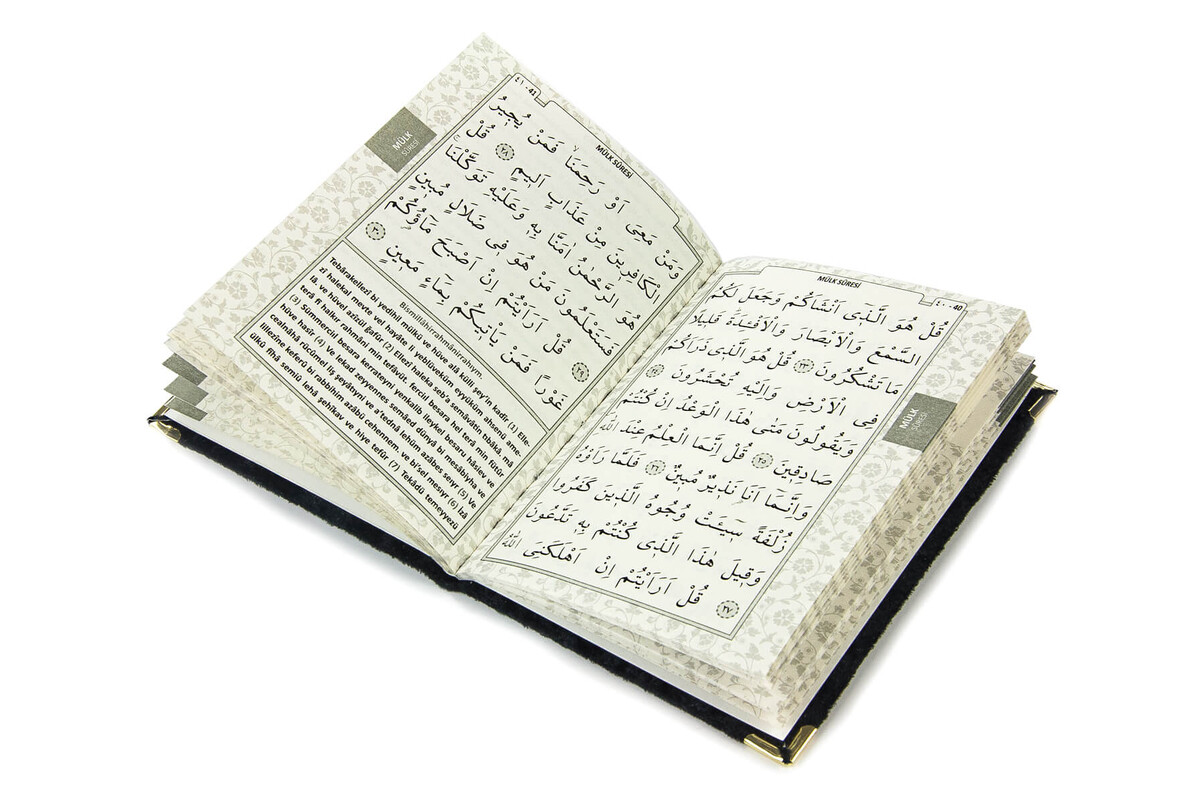 MÜLK SÛRESİ
٤٠ - 40
قُلْ هُوَ الَّذٖٓى اَنْشَاَكُمْ وَجَعَلَ لَكُمُ
السَّمْعَ وَالْاَبْصَارَ وَالْاَفْـِٔدَةَ قَلٖيلًا
مَا تَشْكُرُونَ ﴿٢٣﴾ قُلْ هُوَ الَّذٖى ذَرَاَكُمْ
فِى الْاَرْضِ وَاِلَيْهِ تُحْشَرُونَ ﴿٢٤﴾
وَيَقُولُونَ مَتٰى هٰذَا الْوَعْدُ اِنْ كُنْتُمْ
صَادِقٖينَ ﴿٢٥﴾ قُلْ اِنَّمَا الْعِلْمُ عِنْدَ اللّٰهِ
وَاِنَّمَا اَنَا نَذٖيرٌ مُبٖينٌ ﴿٢٦﴾ فَلَمَّا رَاَوْهُ
زُلْفَةً سٖٓيـَٔتْ وُجُوهُ الَّذٖينَ كَفَرُوا
وَقٖيلَ هٰذَا الَّذٖى كُنْتُمْ بِهٖ تَدَّعُونَ
﴿٢٧﴾ قُلْ اَرَاَيْتُمْ اِنْ اَهْلَكَنِىَ اللّٰهُ
MÜLK
SÛRESİ
MÜLK SÛRESİ
٤١ - 41
وَمَنْ مَعِىَ اَوْ رَحِمَنَا فَمَنْ يُجٖيرُ
الْكَافِرٖينَ مِنْ عَذَابٍ اَلٖيمٍ ﴿٢٨﴾ قُلْ
هُوَ الرَّحْمٰنُ اٰمَنَّا بِهٖ وَعَلَيْهِ تَوَكَّلْنَا
فَسَتَعْلَمُونَ مَنْ هُوَ فٖى ضَلَالٍ مُبٖينٍ
﴿٢٩﴾ قُلْ اَرَاَيْتُمْ اِنْ اَصْبَحَ مَٓاؤُ۬كُمْ
غَوْراً فَمَنْ يَاْتٖيكُمْ بِمَٓاءٍ مَعٖينٍ ﴿٣٠﴾
MÜLK
SÛRESİ
Bismillâhirrahmânirrahıym.
Tebârakellezî bi yedihil mülkü ve hüve alâ külli şey'in kadîr. (1) Elle-
zî halekal mevte vel hayâte li yeblüveküm eyyüküm ahsenü ame-
lâ. ve hüvel azîzül ğafûr (2) Ellezî haleka seb'a semâvâtin tıbâkâ. mâ
terâ fî halkır rahmâni min tefâvüt. ferciıl besara hel terâ min fütûr
(3) Sümmerciıl besara kerrateyni yenkalib ileykel besaru hâsiev ve
hüve hasîr (4) Ve lekad zeyyennes semâed dünyâ bi mesâbîyha ve
cealnâhâ rücûmel liş şeyâtıyni ve a'tednâ lehüm azâbes seıyr (5) Ve
lillezîne keferû bi rabbihim azâbü cehennem. ve bi'sel mesıyr (6) İzâ
ülkû fîhâ semiû lehâ şehîkav ve hiye tefûr (7) Tekâdü temeyyezü